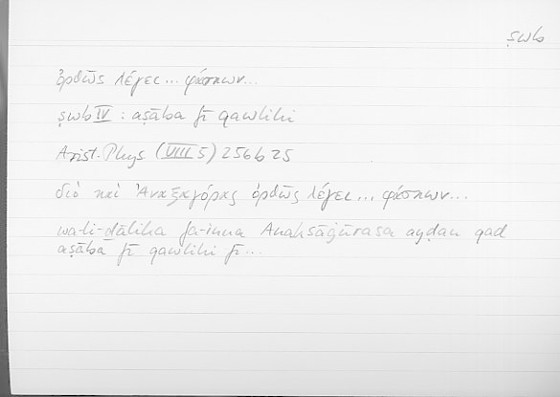 ṣwb
ὀρθῶς λέγει... φάσκων...
ṣwb IV : aṣāba fī qawlihi
Arist. Phys (VIII 5) 256b25
διὸ καὶ Ἀναξαγόρας ὀρθῶς λέγει... φάσκων...
wa-li-ḏālika fa-inna Anaksāġūrasa ayḍan qad
aṣāba fī qawlihi fī...